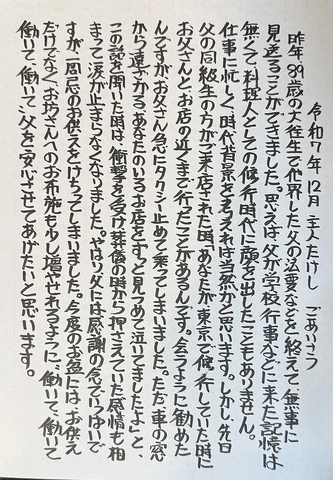 令和7年12月 主人たけし ごあいさつ
昨年89歳の大往生で他界した父の法要などを終えて、無事に
見送ることができました。思えば父が学校行事などに来た記憶は
無くて、料理人としての修行時代に顔を出したこともありません。
仕事に忙しく時代背景を考えれば当然かと思います。しかし、先日
父の同級生の方がご来店された時、あなたが東京で修行していた時に
お父さんと、お店の近くまで行たことがあるんです。会うように勧めた
んですがお父さん急にタクシー止めて乗ってしまいました。ただ車の窓
から遠ざかる、あなたのいるお店をずっと見つめて泣いてましたよ」と、
この話を聞いた時は、衝撃を受け葬儀の時から押さえていた感情も相
まって涙が止まらなくなりました。やはり父には感謝の念でいっぱいで
すが一周忌のお供えをけちってしまいました。今度のお盆には、お供え
だけでなく、お坊さんへのお布施も少し増やせれるように、働いて、働いて
働いて、働いて父を安心させてあげたいと思います。